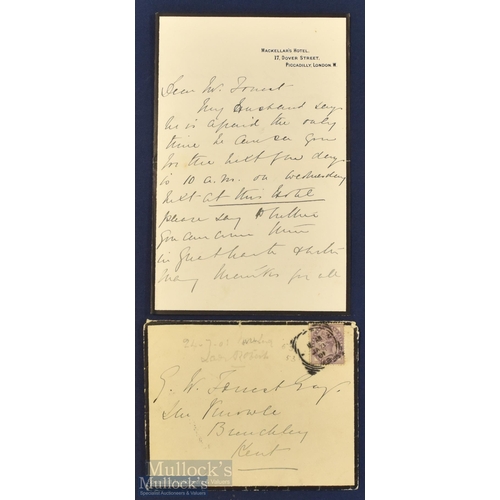 MACKELLAR'S HOTEL,
17, DOVER STREET,
PICCADILLY, LONDON, W.
Dear Mr. Forrest
My Husband says
he is afraid the only
time he can see you
for the next few days
is 10 a.m. on Wednesday
next at this Hotel
please say whether
you can come then
in great haste & with
many thanks for all
G. W. Forrest Esq.
The Knowle
Brenchley
Kent
Mullock's
Specialist Auctioneers & Valuers